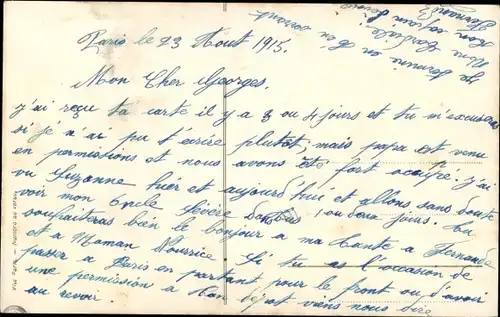 Paris le 23 Aout 1915.
Mon Cher Georges.
j'ai reçu ta carte il y a 3 ou 4 jours et tu m'excuseras
si je n'ai pu t'écrire plutôt, mais papa est venu
en permissions et nous avons été fort occupé. j'ai
vu Suzanne hier et aujourd'hui et allons sans doute
voir mon Oncle dans 1 ou deux jours. Tu
souhaiteras bien le bonjour a ma Tante a Fernande
et a Maman Nourrice Si tu as l'occasion de
passer a Paris en partant pour le front ou d'avoir
une permission a ton dépot viens nous dire
au revoir.